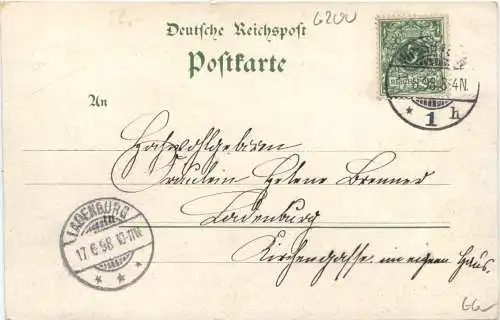 6200
Deutsche Reichspost
Postkarte
An
1 h
Hochwohlgeboren
Fräulein Helene Brenner
in
Ladenburg
Kirchengasse im eigenen Haus.
LADENBURG
17 6 98 10-11V.